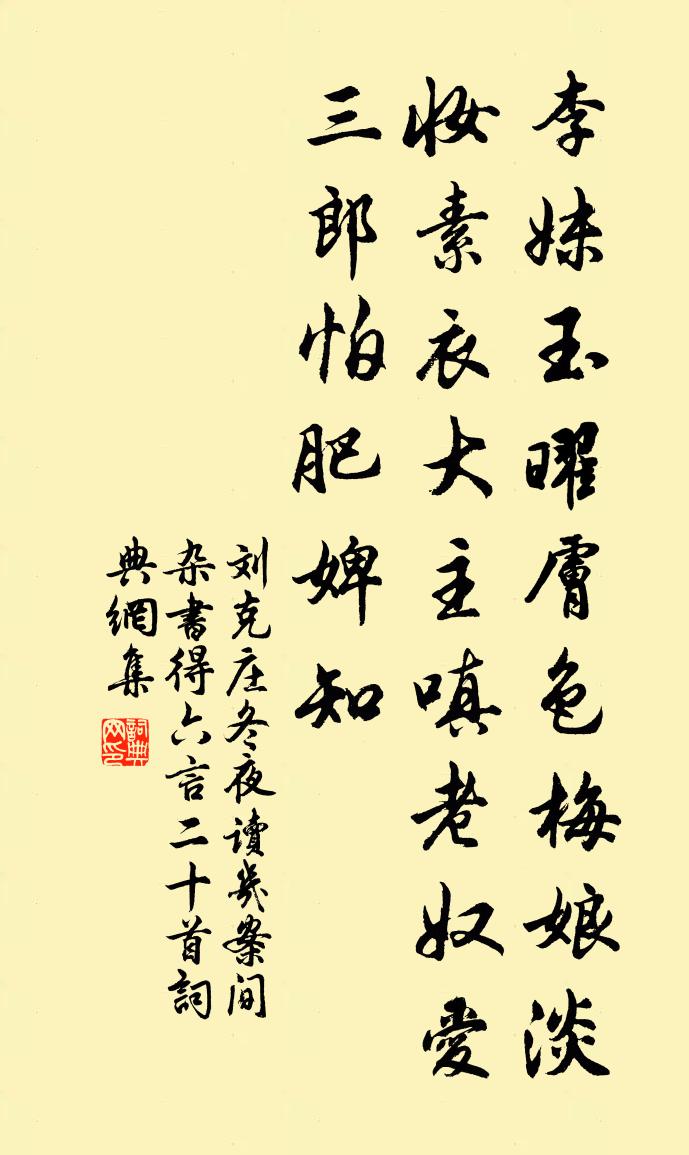 李妹玉曜膚色梅娘淡
妝素衣大主嗔老奴愛
三郎怕肥婢知
刘克庄冬夜讀幾案間
杂書得六言二十首詞
典網集
詞典網印